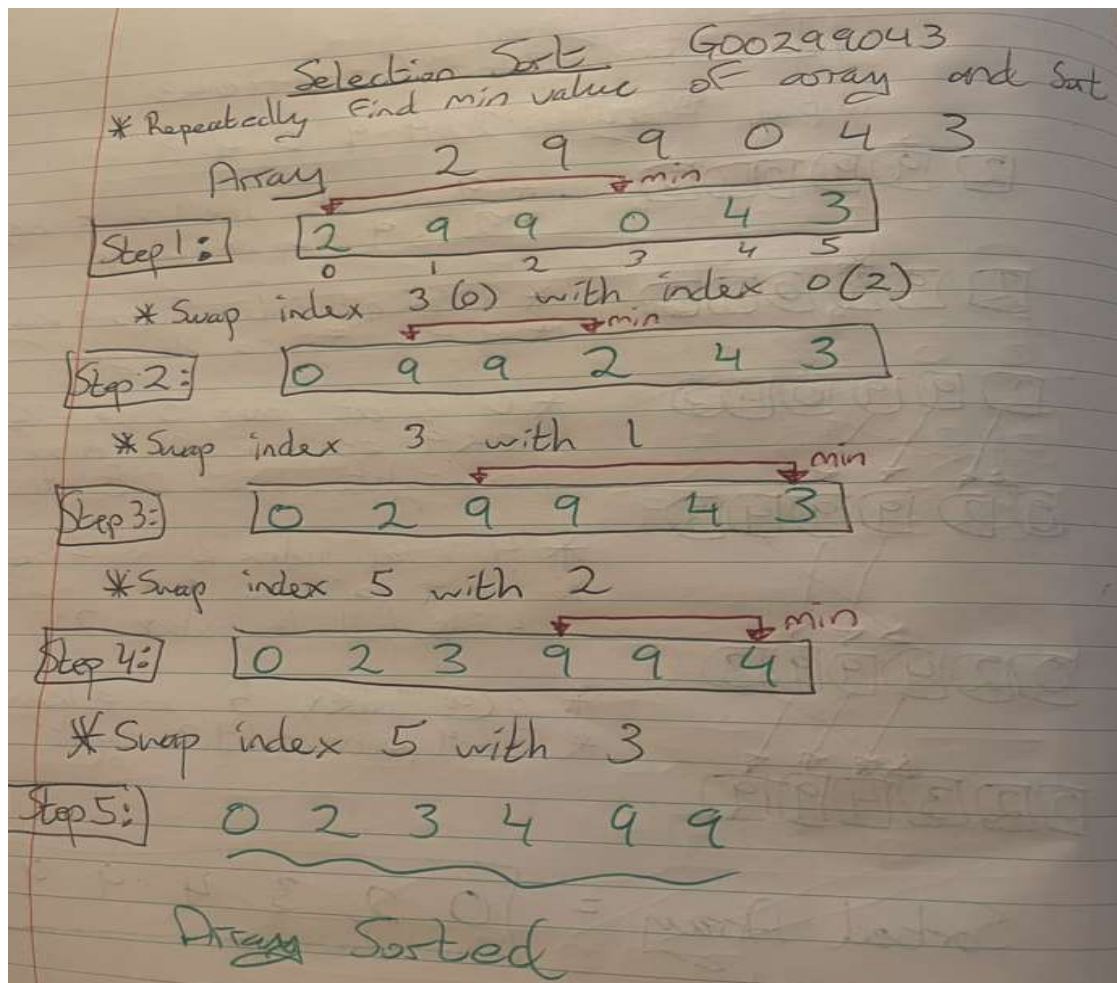 Selection Sort G00299043
* Repeatedly Find min value of array and Sort
Array 2 9 9 0 4 3
min
Step 1: 2 9 9 0 4 3
0 1 2 3 4 5
* Swap index 3 (0) with index 0 (2)
min
Step 2: 0 9 9 2 4 3
* Swap index 3 with 1
min
Step 3: 0 2 9 9 4 3
* Swap index 5 with 2
min
Step 4: 0 2 3 9 9 4
* Swap index 5 with 3
Step 5: 0 2 3 4 9 9
Array Sorted